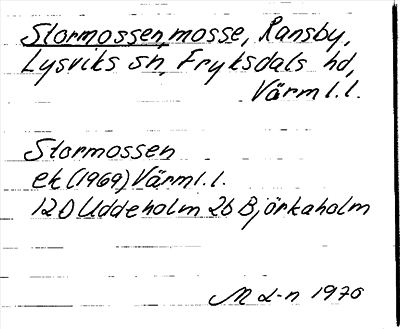 Stormossen, mosse, Ransby,
Lysviks sn, Fryksdals hd,
Värml.l.
Stormossen
ek (1969) Värml.l.
12D Uddeholm 2b Björkaholm
M L-n 1970